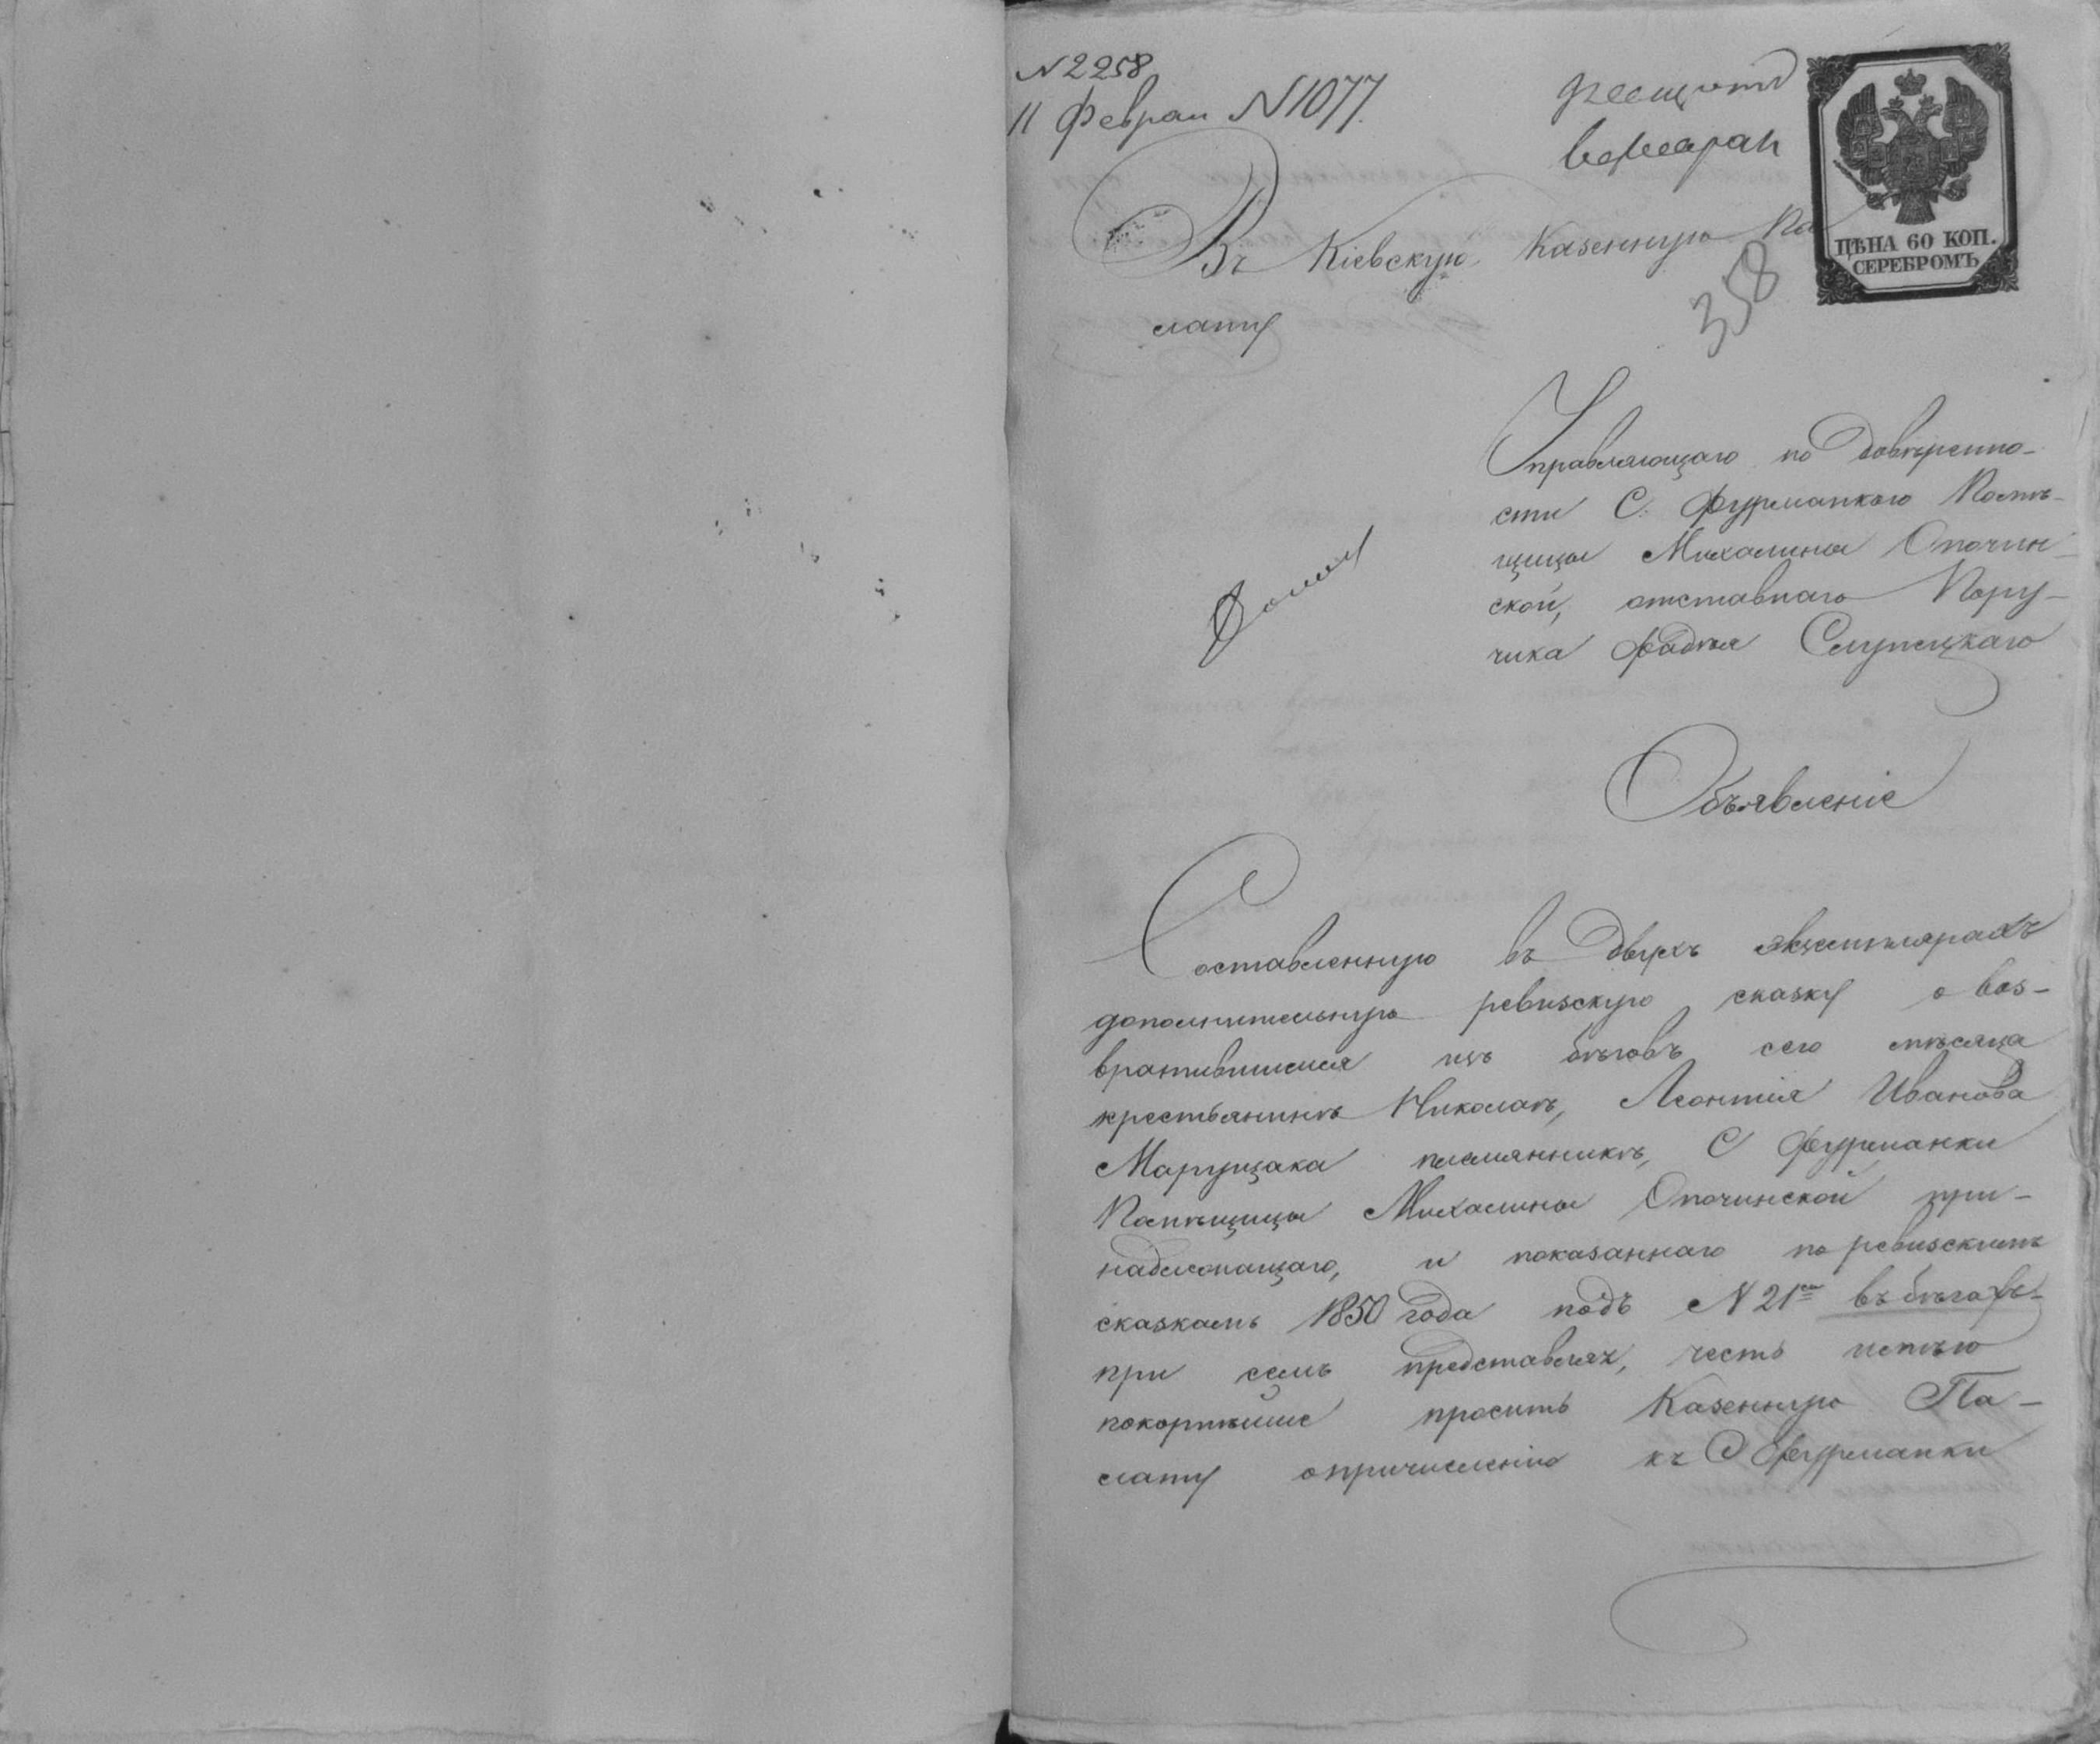 N 2258
11 Феврал N 1077.
ЦѢНА 60 КОП.
СЕРЕБРОМЪ
358
Въ Кіевскую Казенную Па
лату
Управляющаго по довѣренно-
сти С. Фурманкою Помѣ-
щицы Михалины Опочин-
ской, отставнаго Пору-
чика Фадѣя Слупецкаго
Объявленіе
Составленную въ двухъ экземплярахъ
дополнительную ревизскую сказку о воз-
вратившемся изъ бѣговъ сего мѣсяца
крестьянинѣ Николаѣ, Леонтія Иванова
Марущака племянникѣ, С Фурманки
Помѣщицы Михалины Опочинской при-
надлежащаго, и показаннаго по ревизскимъ
сказкамъ 1850 года подъ N 21мъ въ бѣгахъ-
при семъ представляя, честь имѣю
покорнѣйше просить Казенную Па-
лату о причисленіи къ С Фурманки